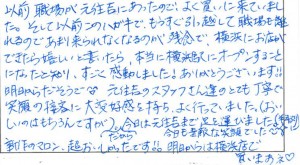 以前職場が元住吉にあったので、よく買いに来ていまし
た。そして以前このハガキで、もうすぐ引っ越して職場も離
れるのであまり来られなくなるのが残念で、横浜にお店が
できたら嬉しいと書いたら、本当に横浜駅にオープンすること
になったと知り、すごく感動しました!ありがとうございます!!
明日からだそうで 元住吉のスタッフさん達のとても丁寧で
笑顔の接客に大変好感を持ち、よく行っていました(おい
しいのはもちろんですが)。今日は元住吉まで足を運びましたが
だから 今日も素敵な笑顔でした
新作のマロン、超おいしかったです!!明日からは横浜店で
買いまカス